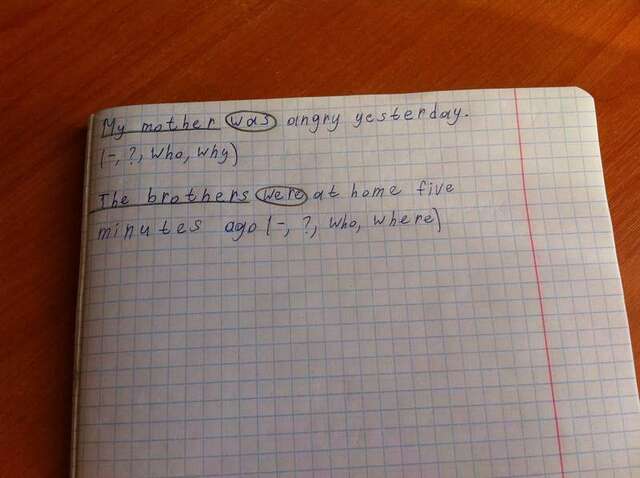 My mother was angry yesterday.
(-, ?, who, why)
The brothers were at home five
minutes ago (-, ?, who, where)